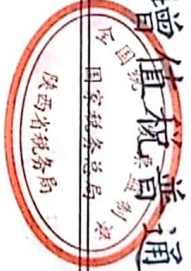 增值税普通
全国统一发票监制章
国家税务总局
陕西省税务局